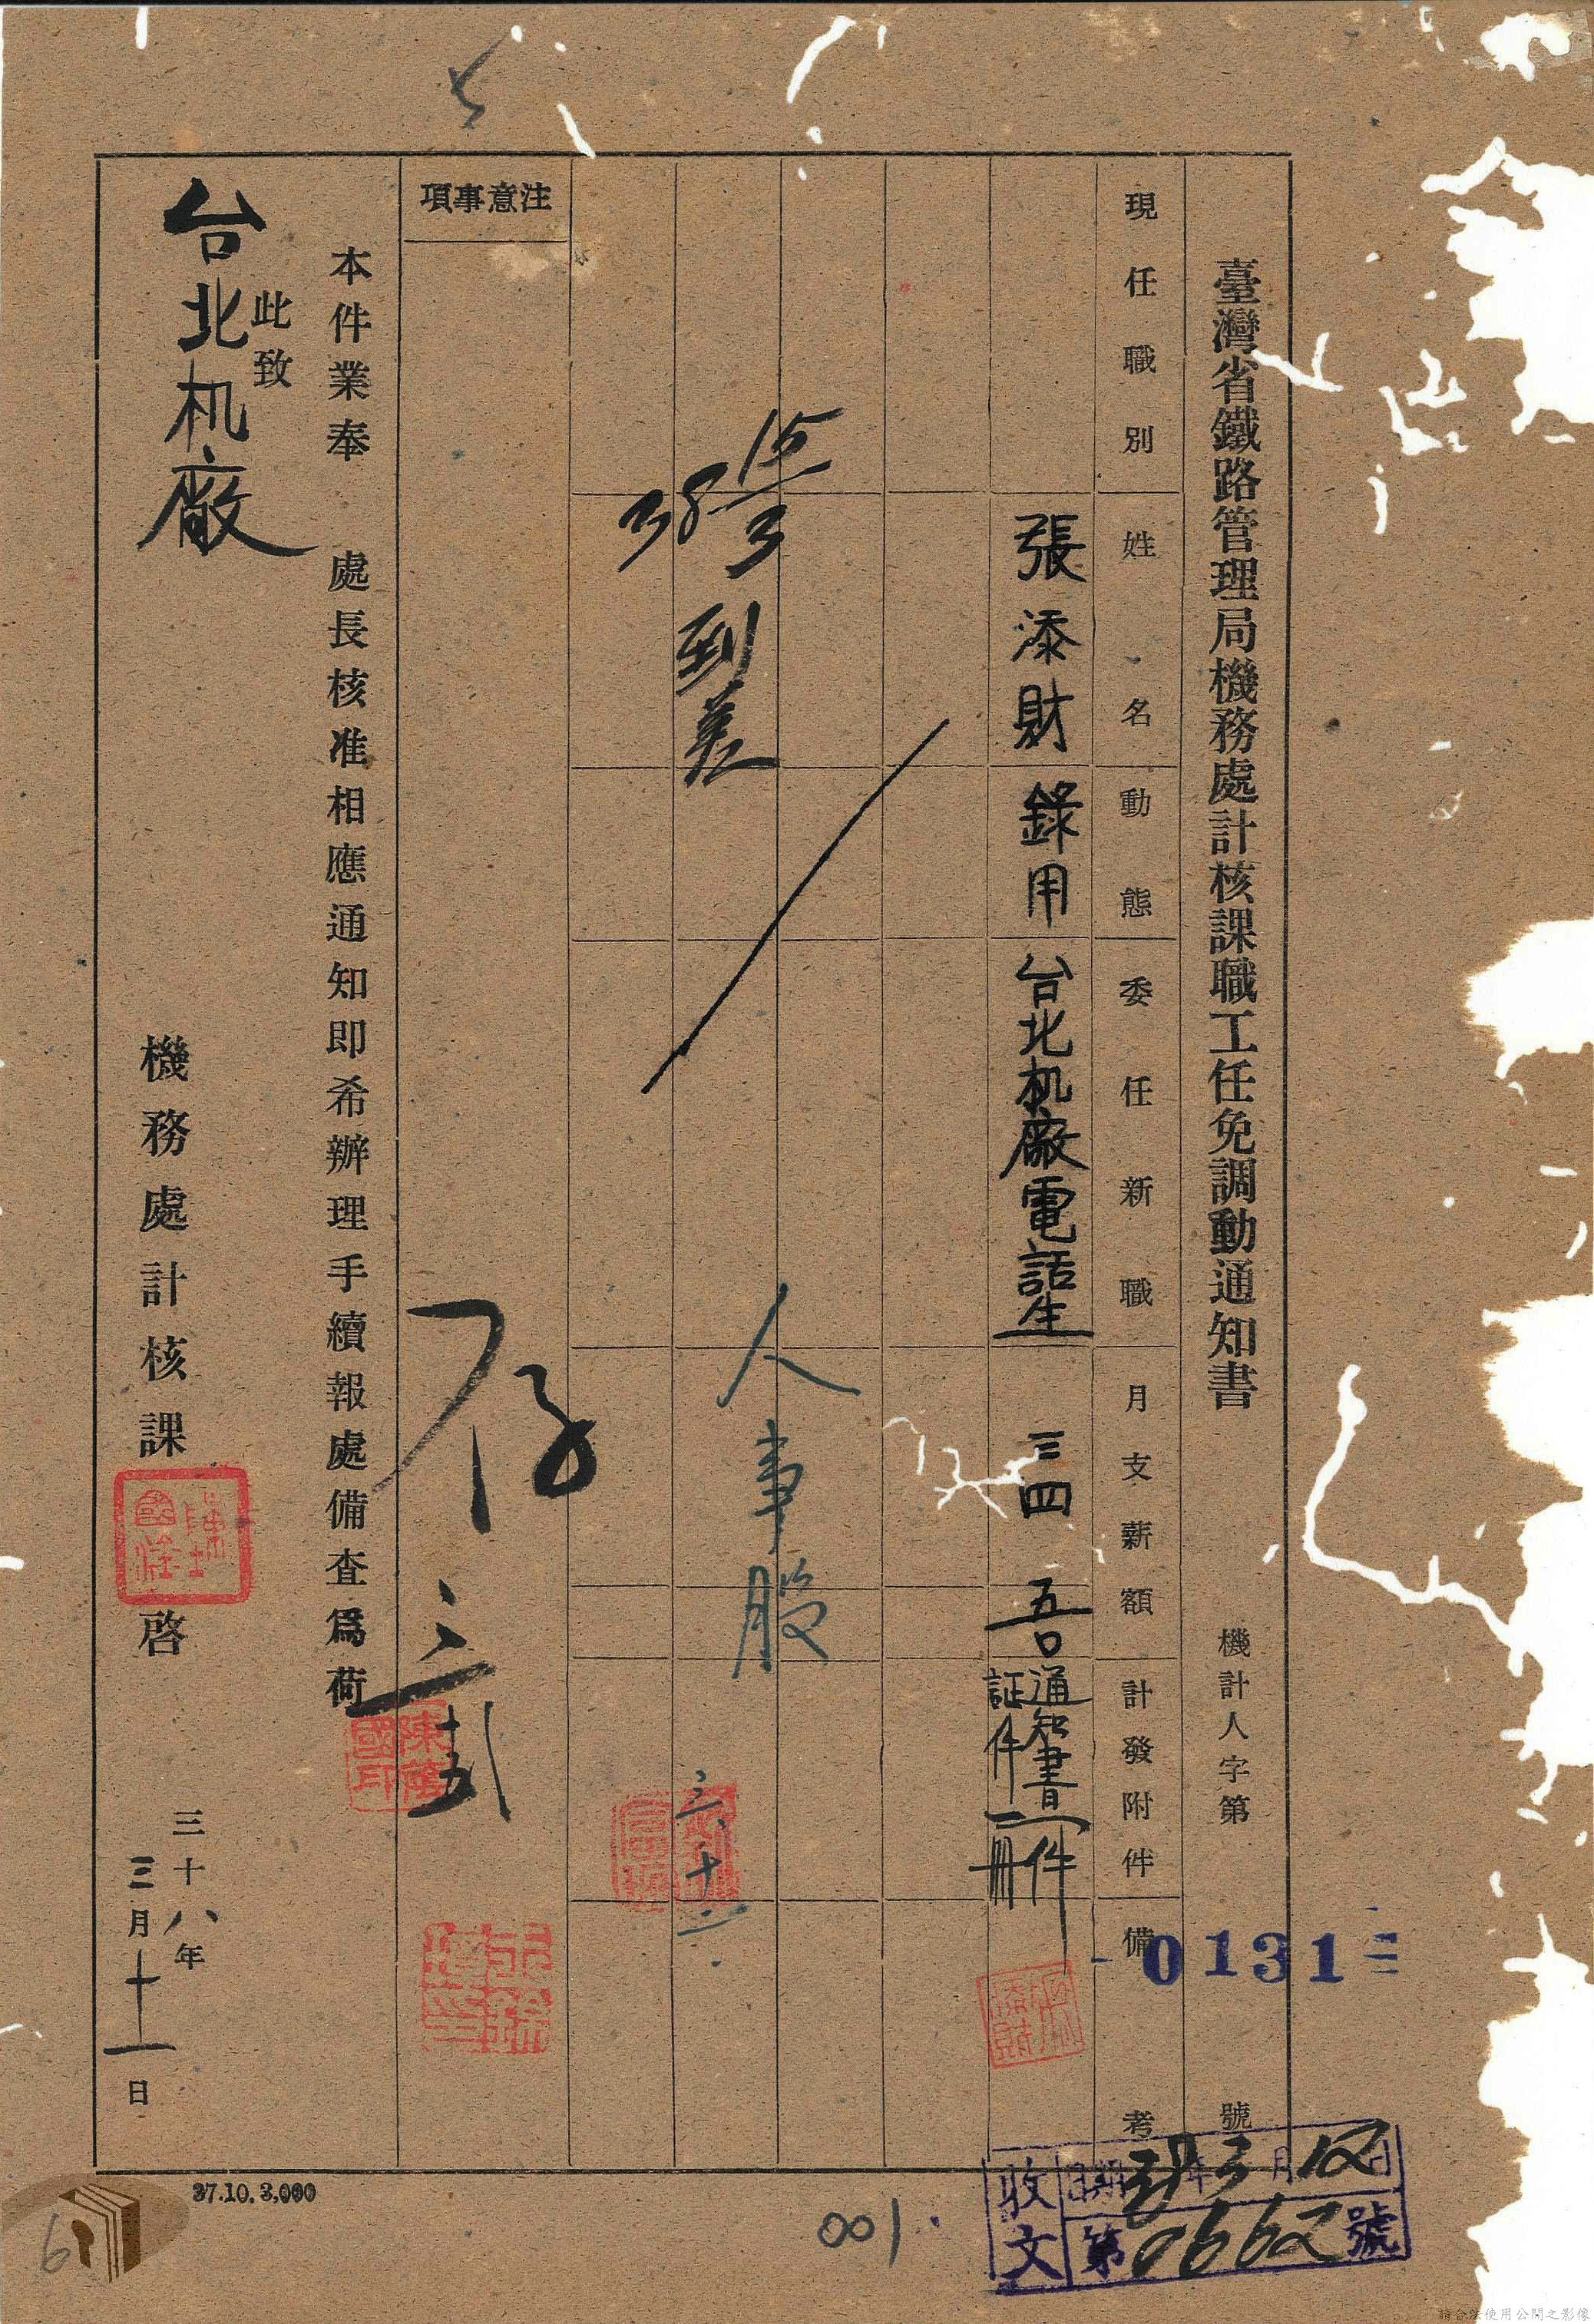 臺灣省鐵路管理局機務處計核課職工任免調動通知書
機計人字第 號
0131
現任職別
姓名
動態
委任新職
月支薪額
計發附件
備考
張添財
錄用
台北机廠電話生
三四
通知書一件
証件一冊
15/3
38
到差
人事股
三、十二
注意事項
存
本件業奉 處長核准相應通知即希辦理手續報處備查爲荷
陳蔭國印
此致
台北机廠
機務處計核課 啓
三十八年
三月十一日
37.10.3,000
001
6
收文 日期 38年3月12日
第0662號
請合法使用公開之影像